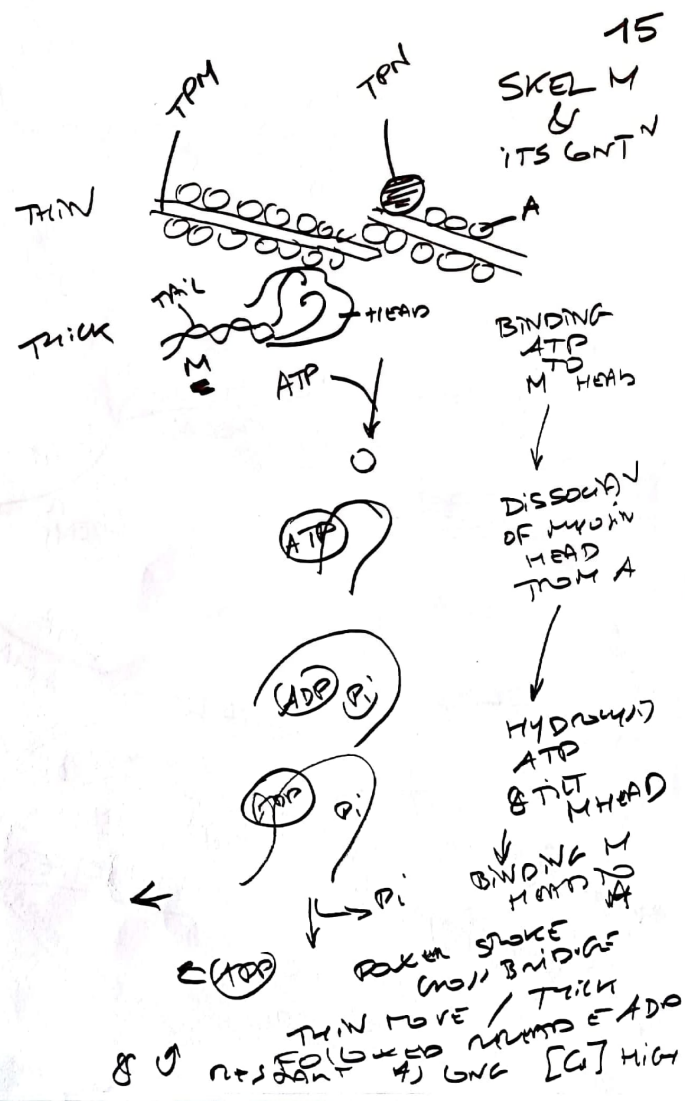 15
SKEL M
&
ITS CONT N
TPM
TPN
THIN
A
TAIL
HEAD
THICK
M
ATP
BINDING
ATP
TO
M HEAD
DISSOCIAN
OF MYOSIN
HEAD
FROM A
ATP
ADP Pi
HYDROLYSIS
ATP
& TILT
M HEAD
ADP Pi
BINDING M
HEAD TO
A
Pi
ADP
POWER STROKE
CROSS BRIDGE
THIN MOVE / THICK
FOLLOWED RELEASE ADP
& RESTART AS LONG [Ca] HIGH